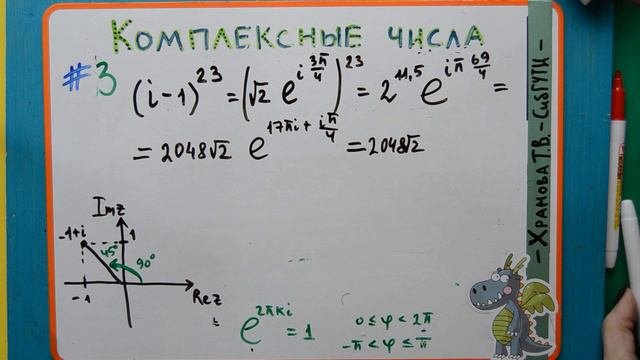 Комплексные числа
#3
(i-1)^23 = (√2 e^(i 3π/4))^23 = 2^11,5 e^(iπ 69/4) =
= 2048√2 e^(17πi + iπ/4) = 2048√2
Imz
-1+i
1
45°
90°
-1
Rez
e^(2πki) = 1
0 ≤ φ < 2π
-π < φ ≤ π
- Храмова Т.В. - СибГУТИ -